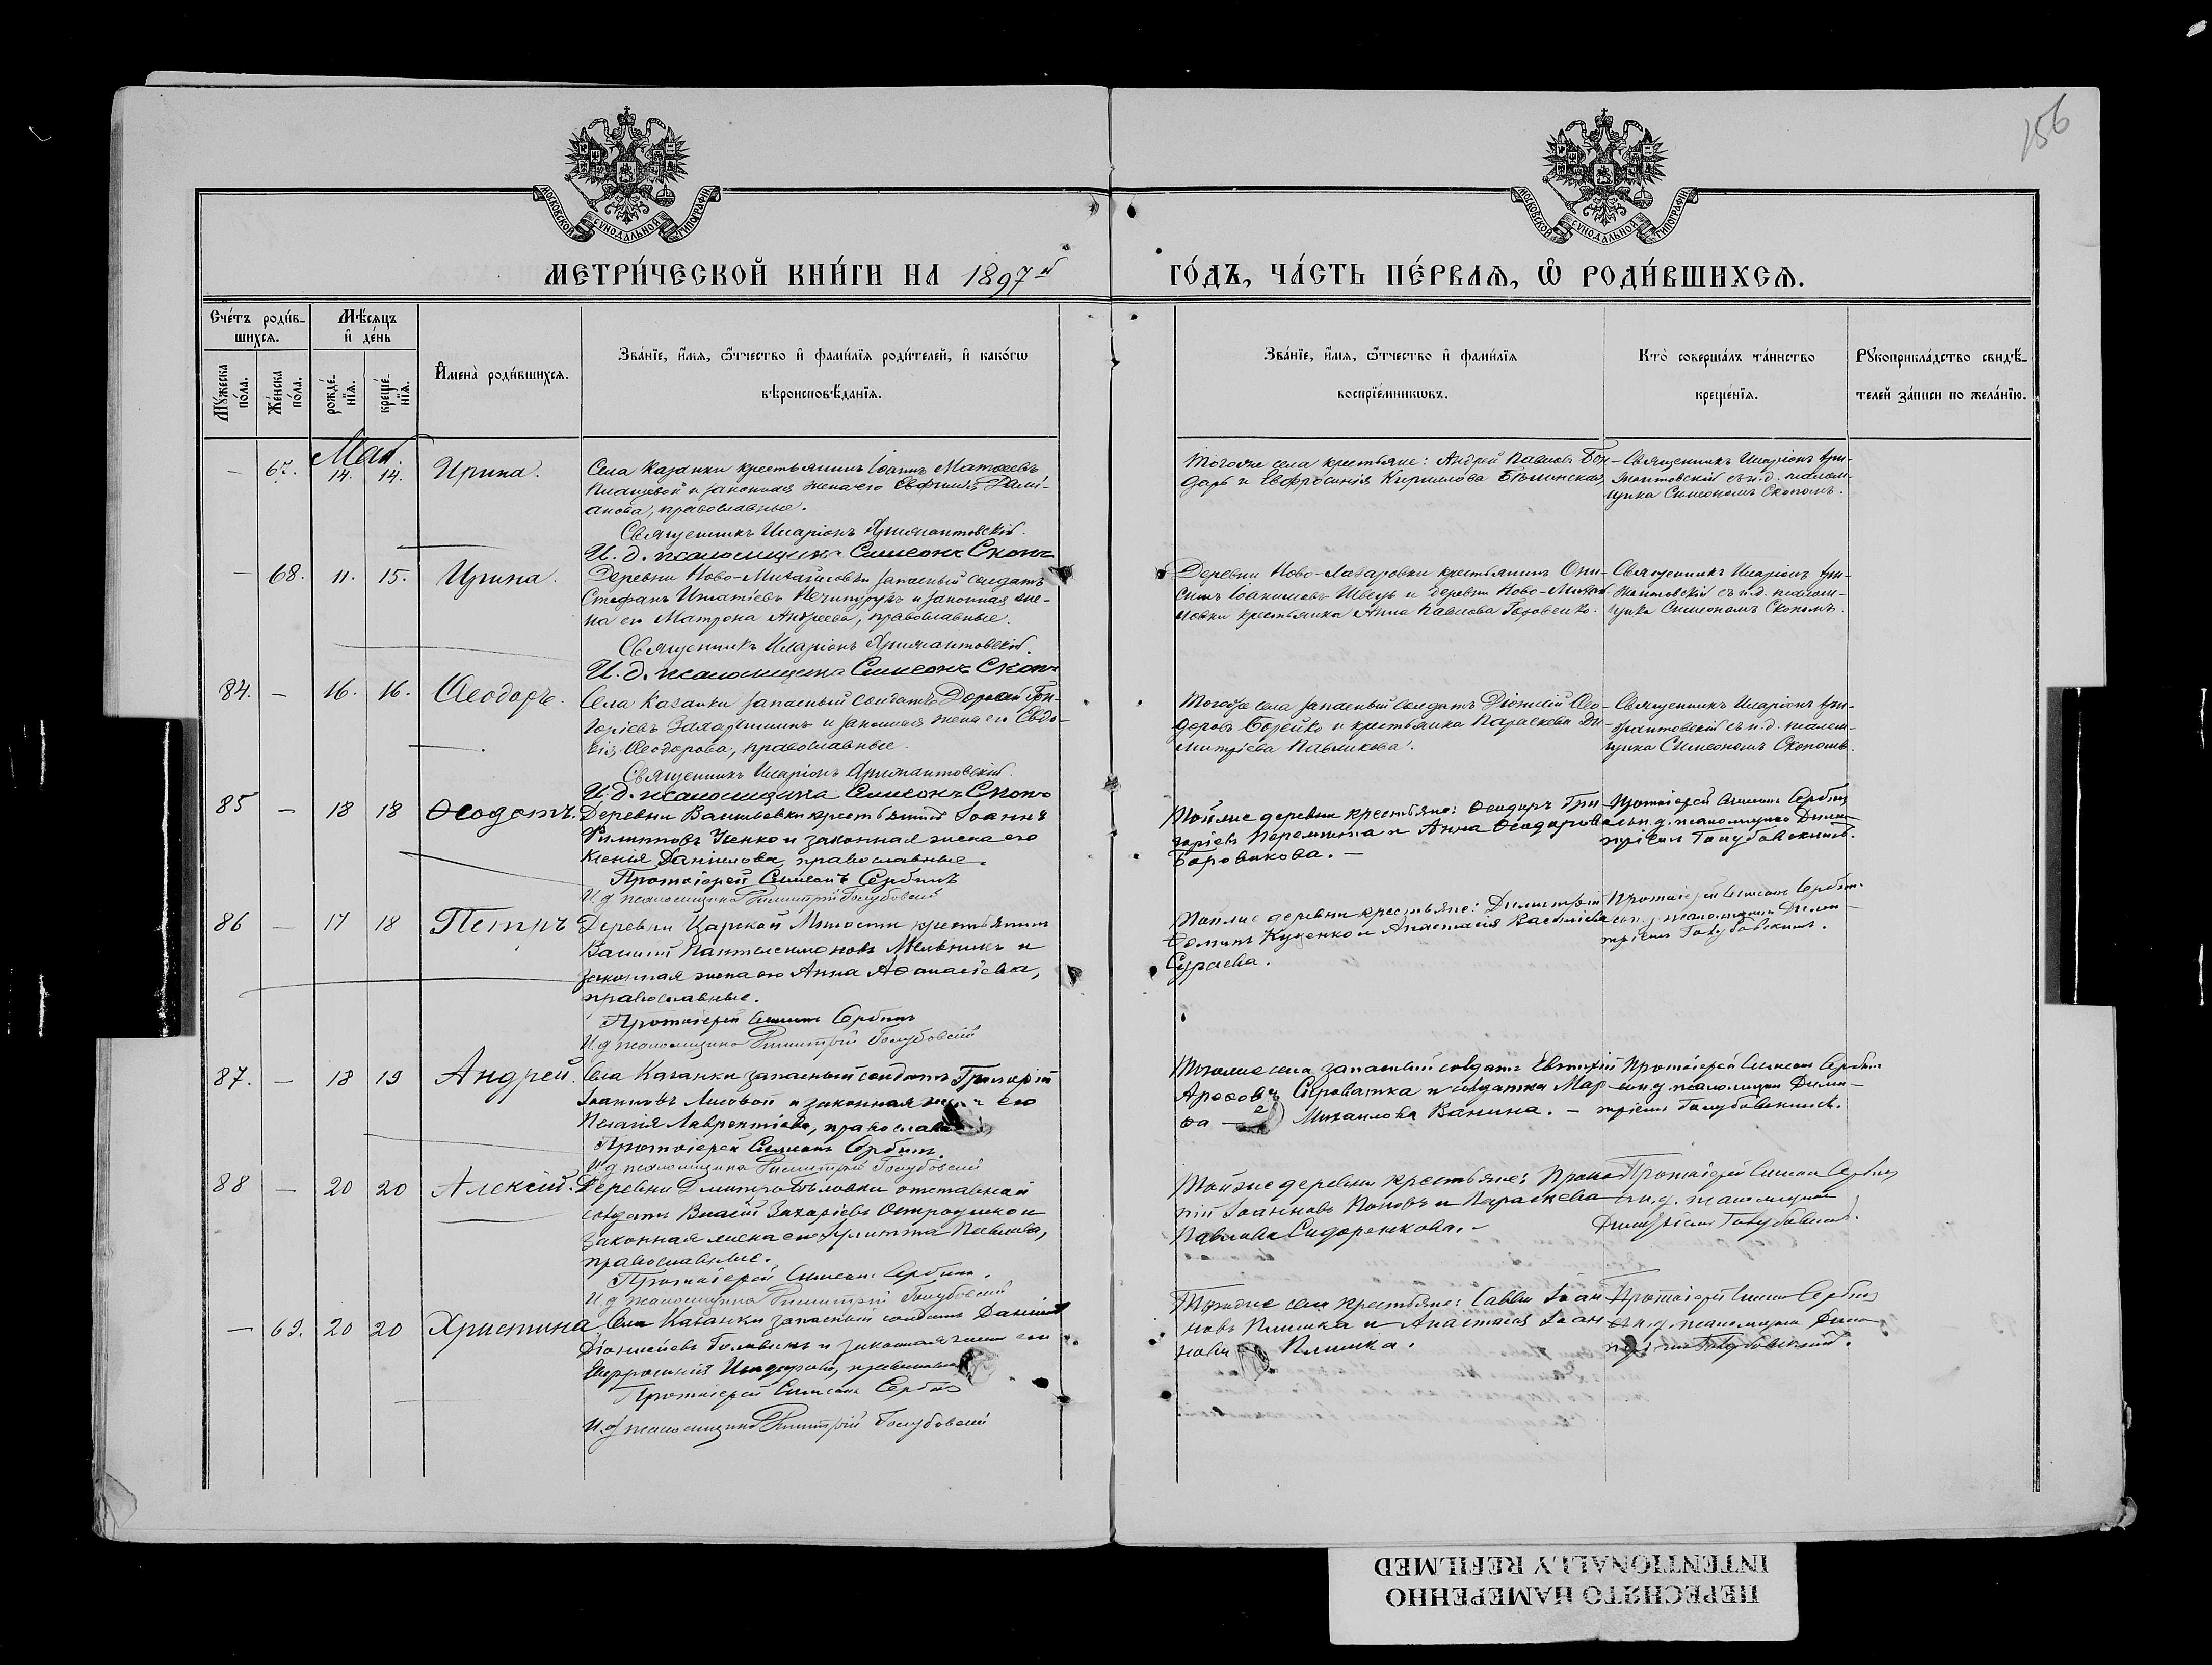 156
МОСКОВСКОЙ СѴНОДАЛЬНОЙ ТИПОГРАФІИ
МОСКОВСКОЙ СѴНОДАЛЬНОЙ ТИПОГРАФІИ
МЕТРИ́ЧЕСКОЙ КНИ́ГИ НА 1897й
ГО́ДЪ, ЧА́СТЬ ПЕ́РВАѦ, Ѡ҆ РОДИ́ВШИХСѦ.
Сче́тъ роди́в-
шихсѧ.
Мѣ́сѧцъ
и҆ де́нь
Мꙋ́жеска
по́ла.
Же́нска
по́ла.
рожде́-
нїѧ.
креще́-
нїѧ.
И҆мена̀ роди́вшихсѧ.
Зва́нїе, и҆́мѧ, ѻ҆́тчество и҆ фами́лїѧ роди́телей, и҆ како́гѡ
вѣроисповѣ́данїѧ.
Зва́нїе, и҆́мѧ, ѻ҆́тчество и҆ фами́лїѧ
воспрїе́мникѡвъ.
Кто̀ соверша́лъ та́инство
креще́нїѧ.
Рꙋкоприкла́дство свидѣ́-
телей за́писи по жела́нїю.
Май.
— 67. 14. 14. Ирина.
Села Казанки крестьянинъ Іоаннъ Матѳеевъ
и законная жена его Евфимія Дамі-
анова, православные.
Священникъ Иларіонъ
И. д. псаломщика Симеонъ Скопъ
Тогоже села крестьяне: Андрей Павловъ Бон-
дарь и Евфросинія Кириллова
Священникъ Иларіонъ
съ и.д. псалом-
щика Симеономъ Скопомъ.
— 68. 11. 15. Ирина.
Деревни Ново-Михайловки запасный солдатъ
Стефанъ Игнатіевъ Нечипурукъ и законная же-
на его Матрона Андреева, православные.
Священникъ Иларіонъ
И. д. псаломщика Симеонъ Скопъ
Деревни Ново-Лазаровки крестьянинъ Они-
симъ Іоакимовъ Швець и деревни Ново-Михай-
ловки крестьянка Анна Павлова
Священникъ Иларіонъ
съ и.д. псалом-
щика Симеономъ Скопомъ.
84. — 16. 16. Ѳеодоръ.
Села Казанки запасный солдатъ
и законная жена его Евдо-
кія Ѳеодорова, православные.
Священникъ Иларіонъ
И. д. псаломщика Симеонъ Скопъ
Тогоже села запасный солдатъ Діонисій Ѳео-
доровъ и крестьянка Параскева Ди-
митріева Павликова.
Священникъ Иларіонъ
съ и.д. псалом-
щика Симеономъ Скопомъ.
85 — 18 18 Ѳеодотъ.
Деревни Васильевки крестьянинъ Іоаннъ
Филипповъ Усенко и законная жена его
Ксенія Даніилова, православные.
Протоіерей Симеонъ Сербинъ
И. д. псаломщика Димитрій Голубовскій
Тойже деревни крестьяне: Ѳеодоръ Гри-
горіевъ и Анна Ѳеодорова
Боровикова. —
Протоіерей Симеонъ Сербинъ
съ и.д. псаломщика Дими-
тріемъ Голубовскимъ.
86 — 17 18 Петръ
Деревни Царской Милости крестьянинъ
Василій Пантелеимоновъ Мельникъ и
законная жена его Анна Аѳанасіева,
православные.
Протоіерей Симеонъ Сербинъ
И. д. псаломщика Димитрій Голубовскій
Тойже деревни крестьяне: Димитрій
Ѳоминъ Куценко и Анастасія Василіева
Сураева.
Протоіерей Симеонъ Сербинъ
съ и.д. псаломщика Дими-
тріемъ Голубовскимъ.
87. — 18 19 Андрей.
Села Казанки запасный солдатъ Григорій
Іоанновъ Лисовой и законная жена его
Пелагія Лаврентіева, православные
Протоіерей Симеонъ Сербинъ.
И. д. псаломщика Димитрій Голубовскій
Тогоже села запасный солдатъ Евтихій
Сыроватка и солдатка Мар-
ѳа — Михаилова Ванина. —
Протоіерей Симеонъ Сербинъ
съ и.д. псаломщика Дими-
тріемъ Голубовскимъ.
88 — 20 20 Алексій.
Деревни Дмитро-Бѣловки отставной
солдатъ Власій Захаріевъ и
законная жена его Іулитта Павлова,
православные.
Протоіерей Симеонъ Сербинъ.
И. д. псаломщика Димитрій Голубовскій
Тойже деревни крестьяне: Проко-
пій Іоанновъ Поповъ и Параскева
Павлова Сидоренкова. —
Протоіерей Симеонъ Сербинъ
съ и.д. псаломщика
Димитріемъ Голубовскимъ.
— 69. 20 20 Христина
Села Казанки запасный солдатъ Даніилъ
Діонисіевъ и законная жена его
православные
Протоіерей Симеонъ Сербинъ
И. д. псаломщика Димитрій Голубовскій
Тогоже села крестьяне: Савва Іоан-
новъ Плишка и Анастасія Іоан-
нова Плишка.
Протоіерей Симеонъ Сербинъ
съ и.д. псаломщика Дими-
тріемъ Голубовскимъ.
ПЕРЕСНЯТО НАМЕРЕННО
INTENTIONALLY REFILMED